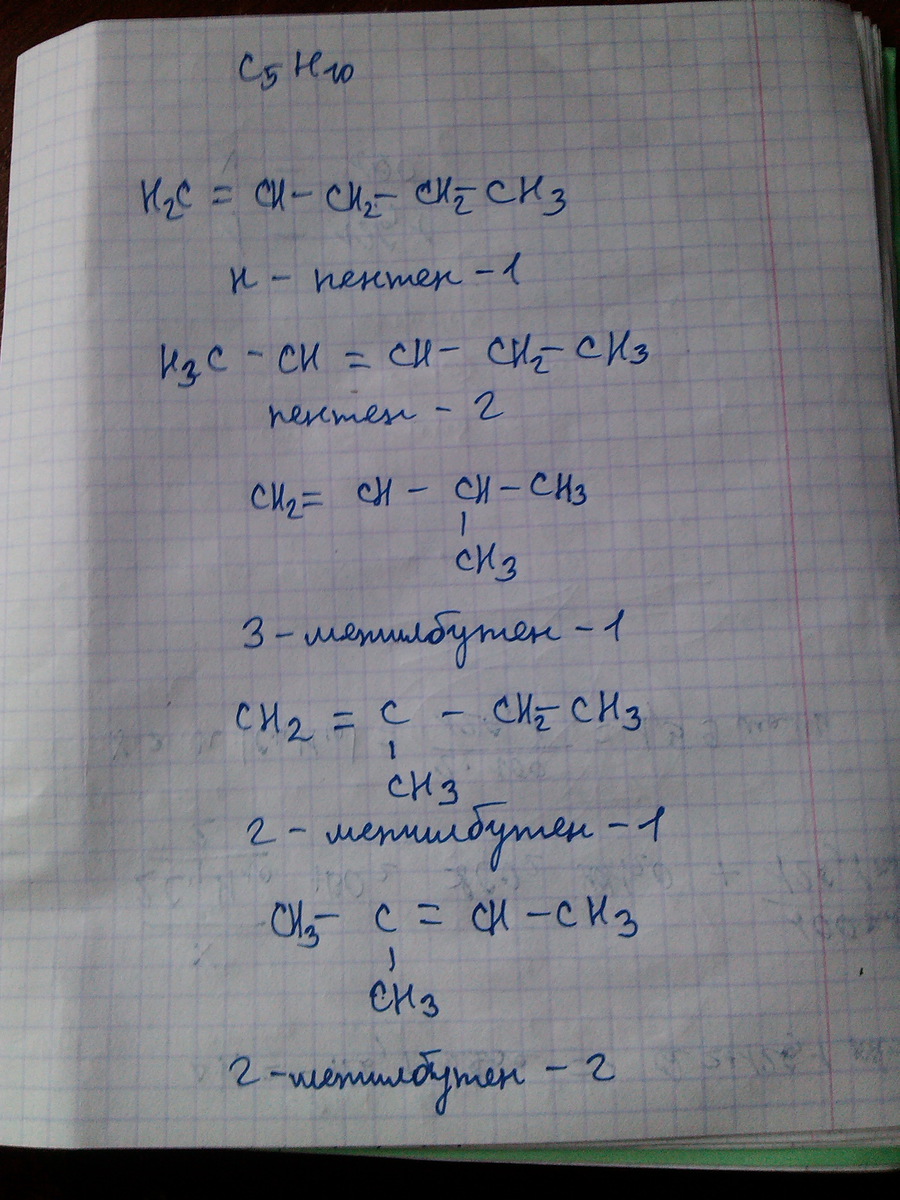 C5H10
H2C = CH - CH2 - CH2 - CH3
н - пентен - 1
H3C - CH = CH - CH2 - CH3
пентен - 2
CH2 = CH - CH - CH3
|
CH3
3 - метилбутен - 1
CH2 = C - CH2 - CH3
|
CH3
2 - метилбутен - 1
CH3 - C = CH - CH3
|
CH3
2 - метилбутен - 2